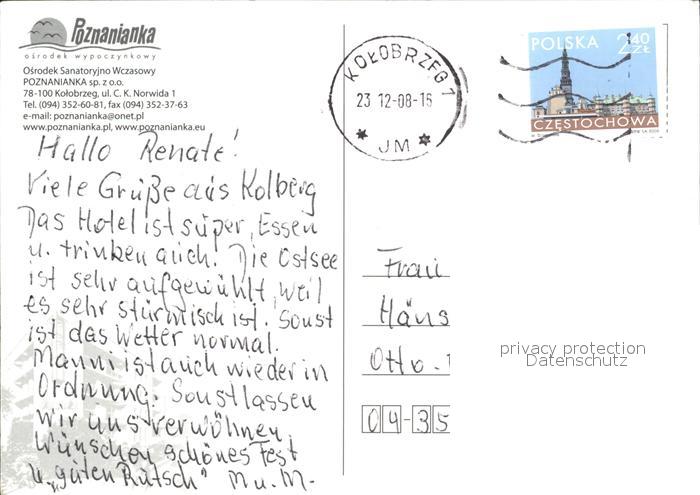 Poznanianka
ośrodek wypoczynkowy
Ośrodek Sanatoryjno Wczasowy
POZNANIANKA sp. z o.o.
78-100 Kołobrzeg, ul. C. K. Norwida 1
Tel. (094) 352-60-81, fax (094) 352-37-63
e-mail: poznanianka@onet.pl
www.poznanianka.pl, www.poznanianka.eu
Hallo Renate!
Viele Grüße aus Kolberg
Das Hotel ist super, Essen
u. trinken auch. Die Ostsee
ist sehr aufgewühlt, weil
es sehr stürmisch ist. Sonst
ist das Wetter normal.
Mann ist auch wieder in
Ordnung. Sonst lassen
wir uns verwöhnen.
Wünschen schönes Fest
u. „guten Rutsch" M u. M.
KOŁOBRZEG 1
23 12-08-16
JM
POLSKA 2,40 ZŁ
CZĘSTOCHOWA
Frau
Häns
Otto.
04-35
privacy protection
Datenschutz